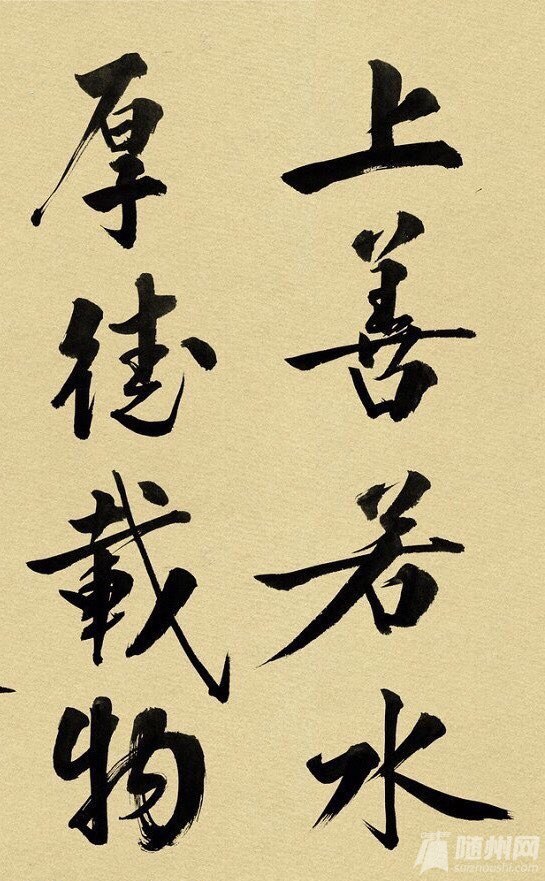 上善若水
厚德載物
随州网
suizhoushi.com